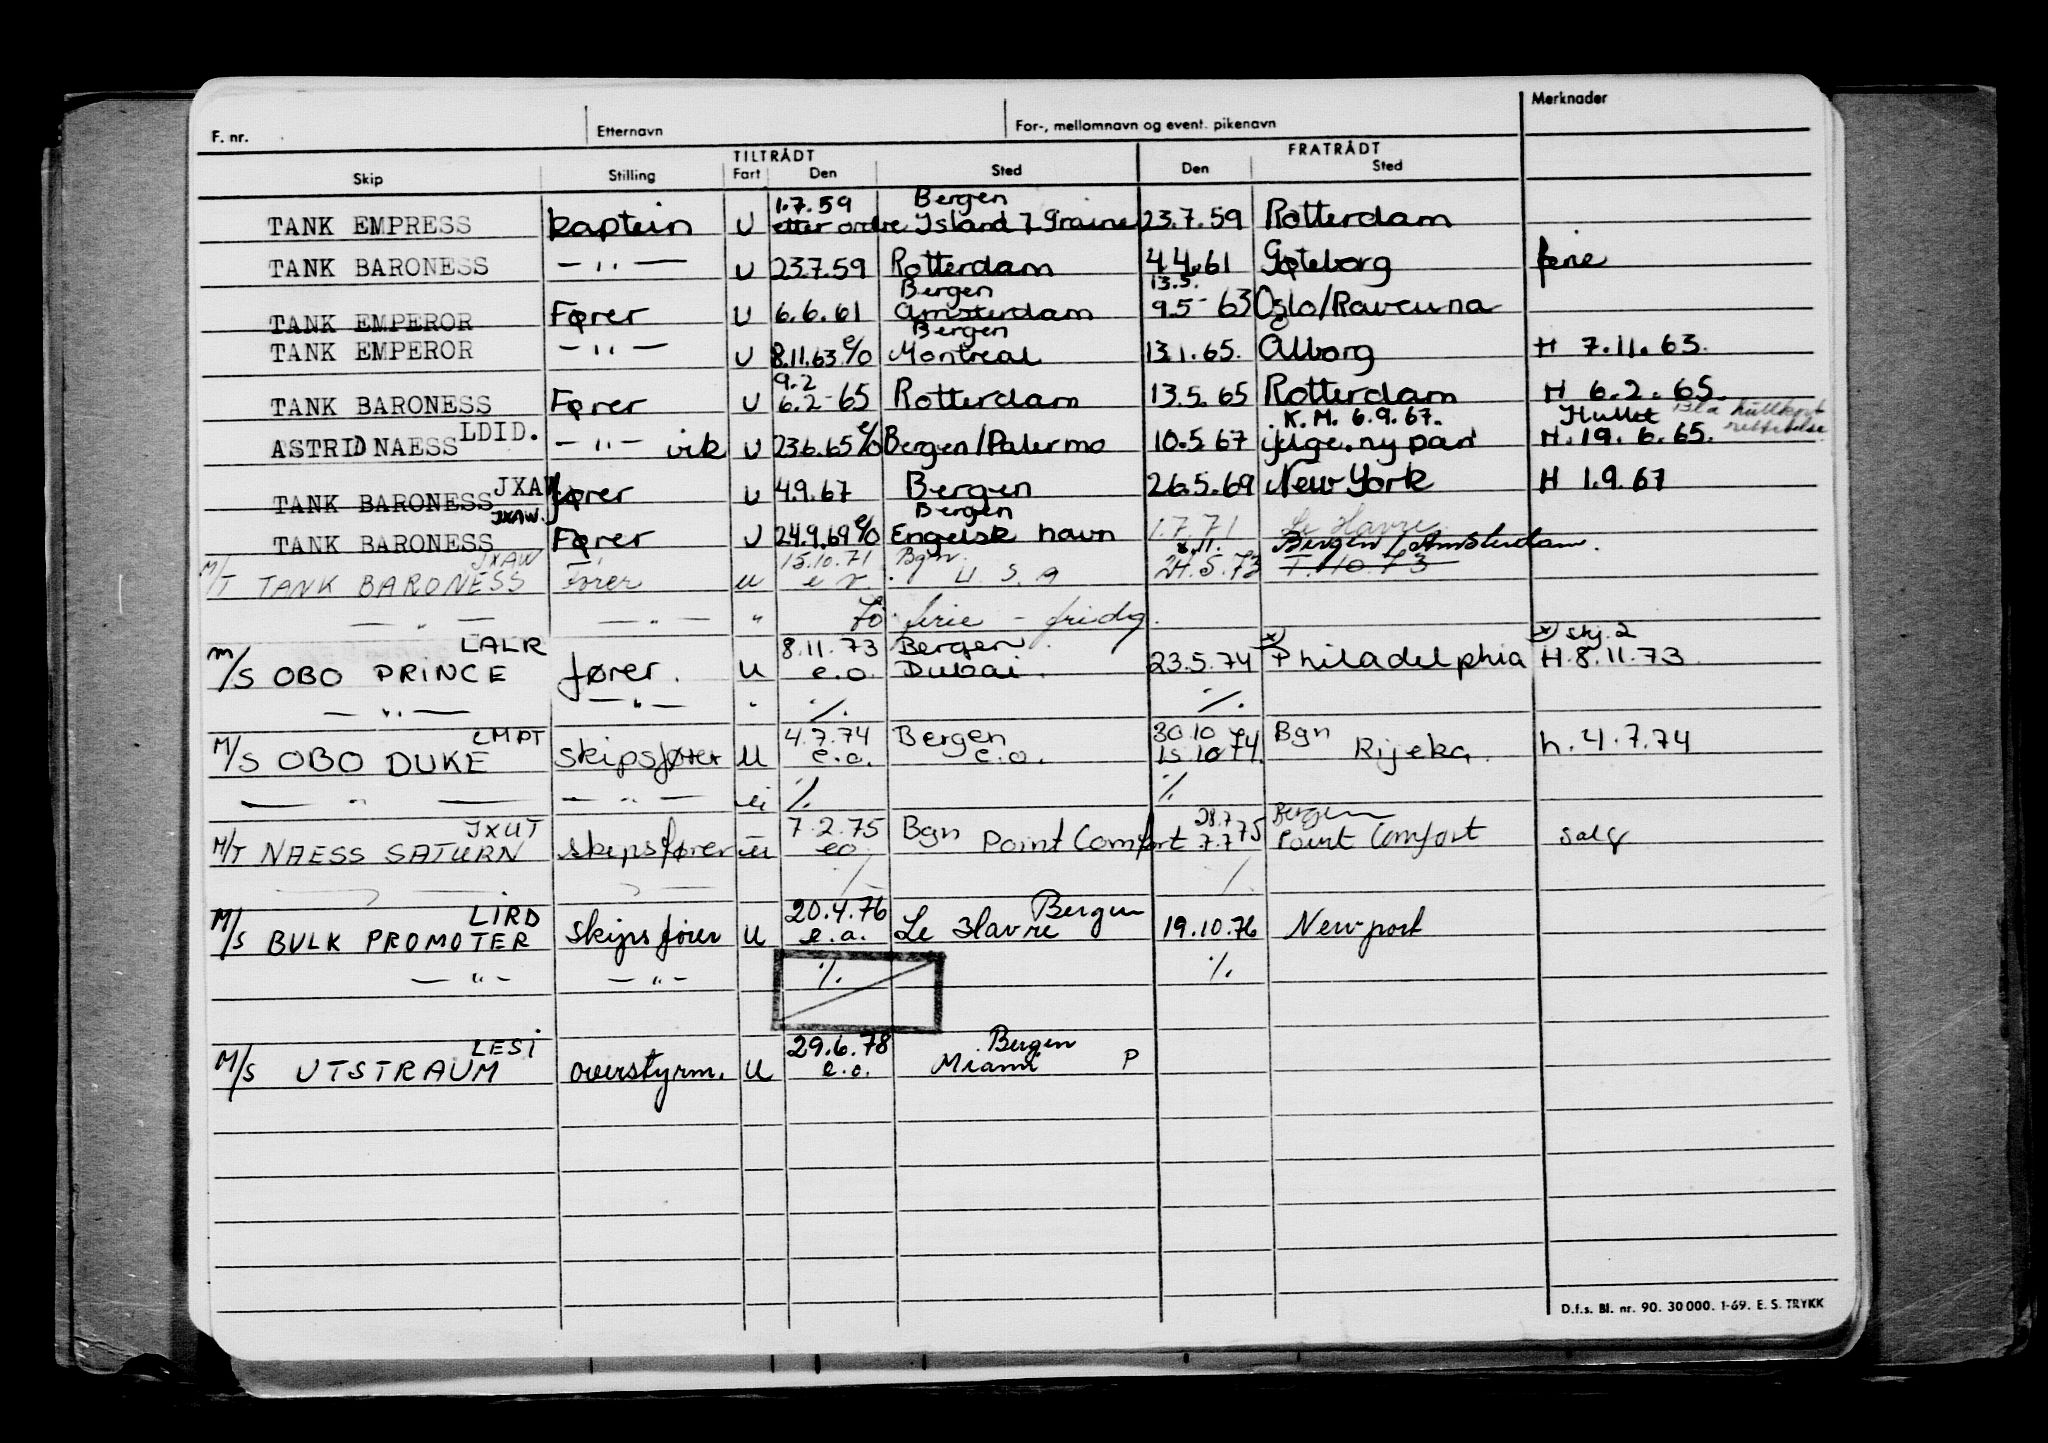 F. nr. Etternavn For-, mellomnavn og event. pikenavn Merknader
TILTRÅDT FRATRÅDT
Skip Stilling Fart Den Sted Den Sted
1.7.59 Bergen
TANK EMPRESS kaptein U etter ordre Island / 23.7.59 Rotterdam
TANK BARONESS — " — U 23.7.59 Rotterdam 4.4.61 Gøteborg ferie
Bergen 13.5.
TANK EMPEROR Fører U 6.6.61 Amsterdam 9.5- 63 Oslo/Ravenna
Bergen
TANK EMPEROR — " — U 8.11.63 e/o Montreal 13.1.65. Ålborg H 7.11.63.
9.2
TANK BARONESS Fører U 6.2-65 Rotterdam 13.5.65 Rotterdam H 6.2.65.
LDID. K.M. 6.9.67. Hullet Blå hullkort
ASTRID NAESS — " — vik U 23.6.65 e/o Bergen/Palermo 10.5.67 ifølge ny part H.19.6.65.
JXAW
TANK BARONESS fører U 4.9.67 Bergen 26.5.69 New York H 1.9.67
JXAW. Bergen
TANK BARONESS Fører U 24.9.69 e/o Engelsk havn 1.7.71 Le Havre
JXAW 15.10.71 Bgn. 8.11. Bergen/Amsterdam.
M/T TANK BARONESS Fører U U.S.A 24.5.73 1.10.73
— " — — " — " ferie - fridg.
LALR 8.11.73 Bergen x) x) skj. 2
M/S OBO PRINCE fører. U e.o. Dubai. 23.5.74 Philadelphia H.8.11.73
— " — — " — " ./. ./.
LMPT 4.7.74 Bergen 30.10 Bgn
M/S OBO DUKE skipsfører U e.o. e.o. 15.10.74. Rijeka. h. 4.7.74
— " — — " — ./. ./.
JXUT 7.2.75 Bgn 28.7 Bergen
M/T NAESS SATURN skipsfører U eo Point Comfort 7.7.75 Point Comfort salg
./. ./.
LIRD 20.4.76 Bergen
M/S BULK PROMOTER skipsfører U e.o. Le Havre 19.10.76 Newport
— " — — " — ./. ./.
LESI 29.6.78 Bergen
M/S UTSTRAUM overstyrm. U e.o. Miami P
D.f.s. Bl. nr. 90. 30 000. 1-69. E. S. TRYKK